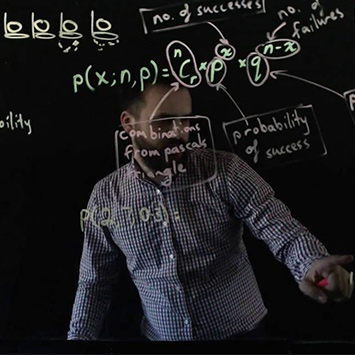 no. of successes
no. of
failures
p(x; n, p) = ⁿCᵣ × pˣ × qⁿ⁻ˣ
bility
combinations
from pascals
triangle
probability
of success
p(2,7,0.3) =